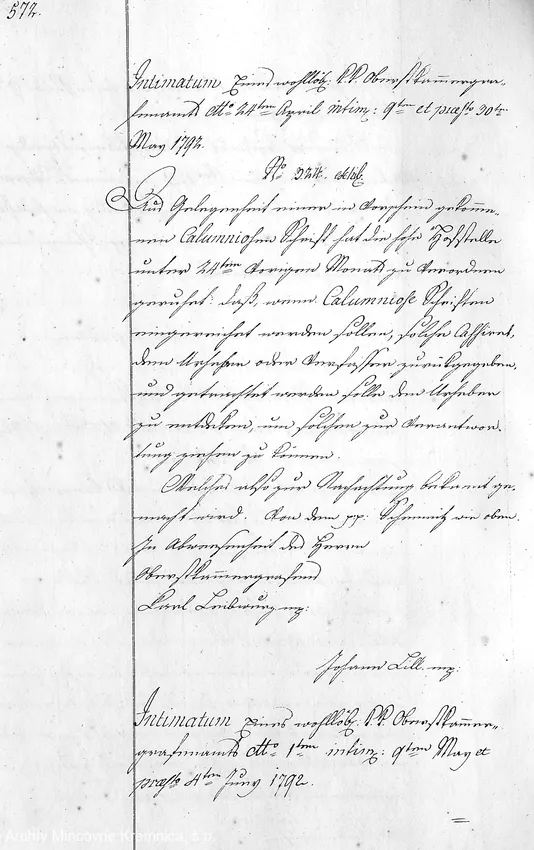 572.
Intimatum Eines wohllöb: k.k. Oberstkam̄ergra-
fenamts dto 24ten April intim: 9ten et præsto 30ten
May 1792.
No 324. exhib.
Aus Gelegenheit einer in Vorschein gekomme-
nen Calumniosen Schrift hat die hohe Hofstelle
unter 24ten vorigen Monats zu verordnen
geruhet: daß, wenn Calumniose Schriften
eingereichet werden sollen, solche cassiret,
dem Urheber oder Verfasser zurückgegeben,
und getrachtet werden solle den Urheber
zu entdeken, um solchen zur Verantwor-
tung ziehen zu können.
Welches also zur Nachachtung bekannt ge-
macht wird. Von dem pp: Schemnitz wie oben.
In Abwesenheit des Herrn
Oberstkam̄ergrafens
Karl Leibwurg mp:
Johann Lill. mp:
Intimatum Eines wohllöb: k.k. Oberstkam̄er-
grafenamts dto 1ten intim: 9ten May et
præsto 4ten Juny 1792.
Archív Mincovne Kremnica, š.p.